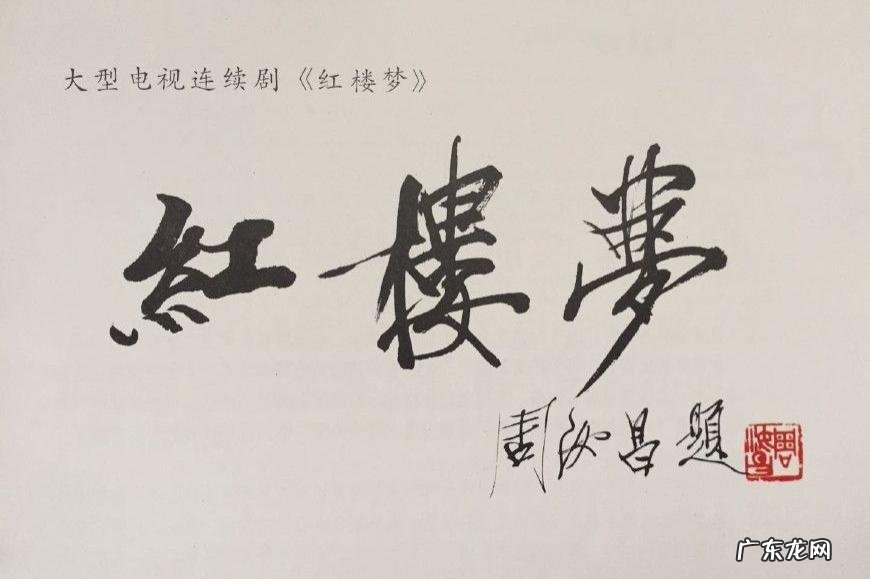 大型电视连续剧《红楼梦》
紅樓夢
周汝昌題
周汝昌
广东龙网